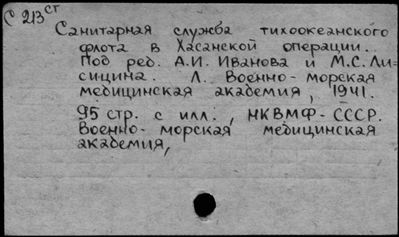 С 213 ст
Санитарная служба тихоокеанского
флота в Хасанской операции.
Под ред. А.И. Иванова и М.С. Ли-
сицина. Л. Военно-морская
медицинская академия, 1941.
95 стр. с илл., НКВМФ-СССР.
Военно-морская медицинская
академия,